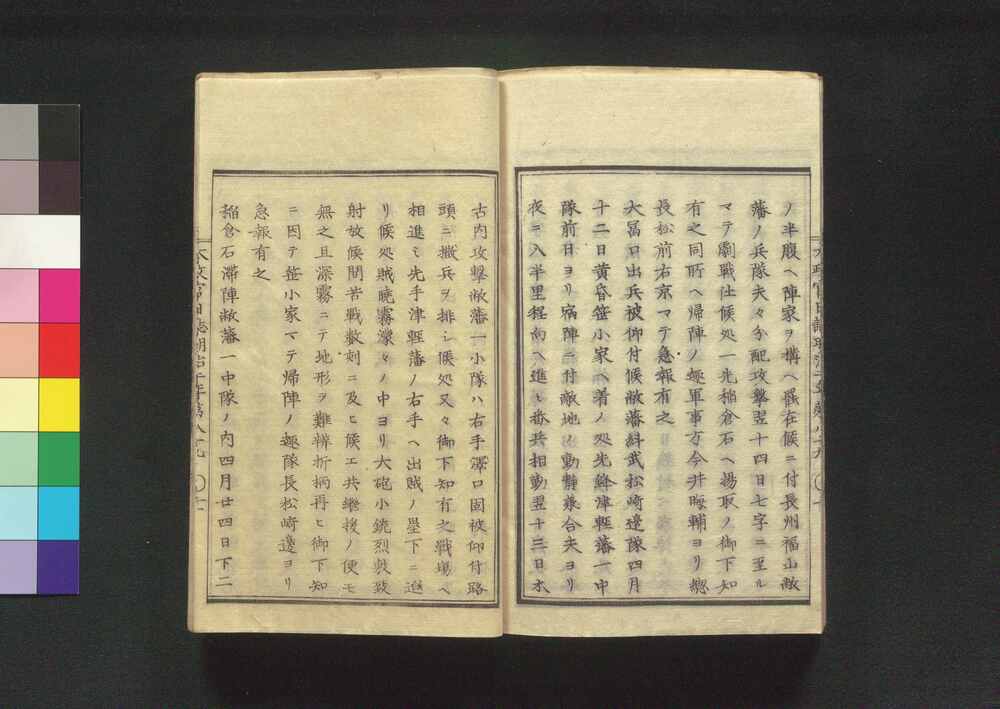 ノ半腹ヘ陣家ヲ構ヘ罷在候ニ付長州福山敝
藩ノ兵隊夫々分配攻撃翌十四日七字ニ至ル
マテ劇戦仕候処一先稲倉石ヘ揚取ノ御下知
有之同所ヘ帰陣ノ趣軍事方今井晦輔ヨリ総
長松前右京マテ急報有之
大冨口出兵被仰付候敝藩斜武松崎邊隊四月
十二日黄昏笹小家ヘ着ノ処先鋒津軽藩一中
隊前日ヨリ宿陣ニ付敵地ノ動静承合夫ヨリ
夜ニ入半里程向ヘ進ミ番兵相勤翌十三日木
古内攻撃敝藩一小隊ハ右手澤口固被仰付路
頭ニ撒兵ヲ排シ候処又々御下知有之戦場ヘ
相進ミ先手津軽藩ノ右手ヘ出賊ノ塁下ニ進
リ候処賊暁霧濛々ノ中ヨリ大砲小銃烈敷致
射放候間苦戦数刻ニ及ヒ候エ共継援ノ便モ
無之且深霧ニテ地形ヲ難辨折柄再ヒ御下知
ニ因テ笹小家マテ帰陣ノ趣隊長松崎邊ヨリ
急報有之
稲倉石滞陣敝藩一中隊ノ内四月廿四日下二
太政官日誌明治二年第八十九